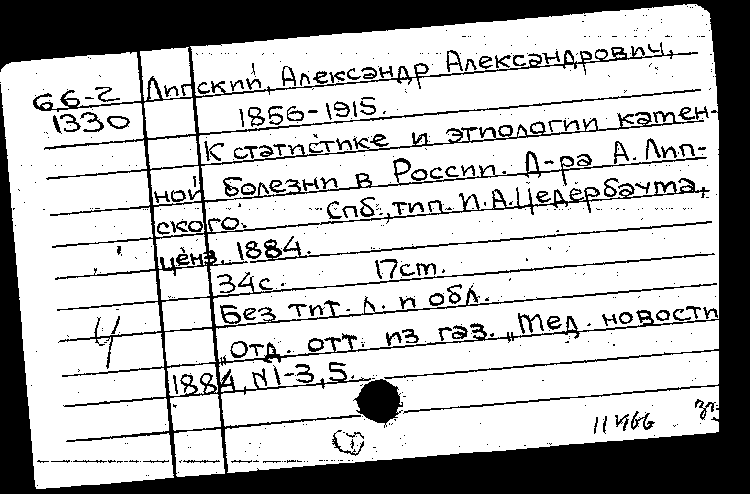 66-2 Липский, Александр Александрович,
1330 1856-1915.
К статистике и этиологии камен-
ной болезни в России. Д-ра А. Лип-
ского. Спб., тип. И.А. Цедербаума,
ценз. 1884.
34с. 17ст.
Без тит. л. и обл.
4 „Отд. отт. из газ. „Мед. новости
1884, N1-3, 5.